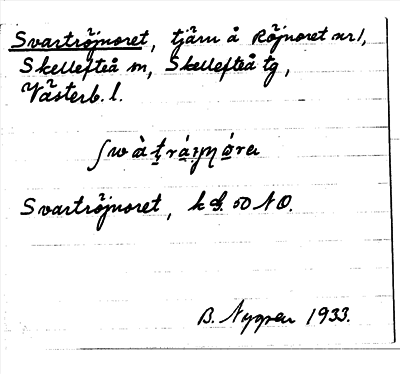 Svartröjnoret, tjärn å Röjnoret nr 1,
Skellefteå sn, Skellefteå tg,
Västerb. l.
Svartröjnoret, k bl. 50 NO.
B. Nygren 1933.